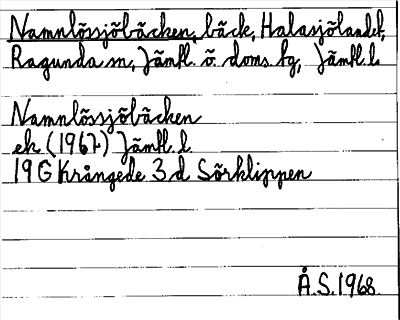 Namnlössjöbäcken, bäck, Halasjölandet,
Ragunda sn, Jämtl. ö. doms. tg, Jämtl. l
Namnlössjöbäcken
ek (1967) Jämtl. l
19 G Krångede 3 d Sörklippen
Å.S. 1968